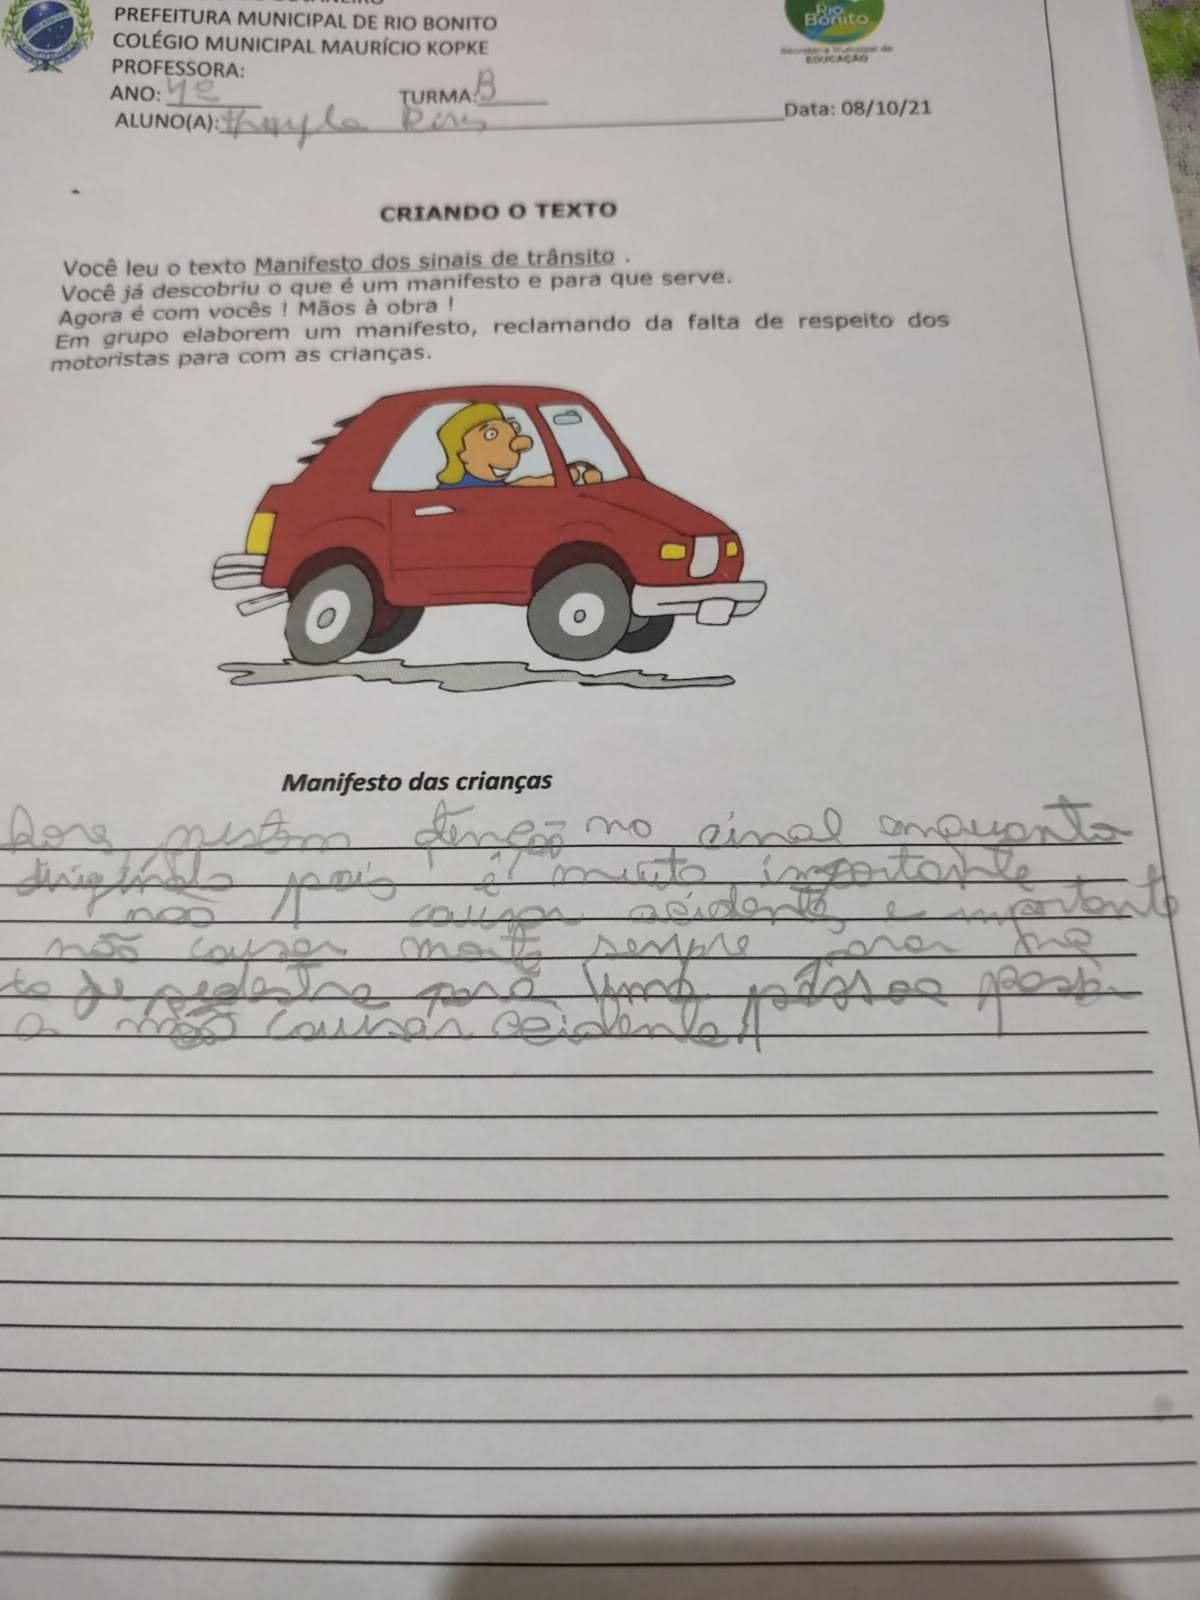 PREFEITURA MUNICIPAL DE RIO BONITO
COLÉGIO MUNICIPAL MAURÍCIO KOPKE
PROFESSORA:
ANO: 4º TURMA: B
ALUNO(A): Data: 08/10/21
Rio Bonito
Secretaria Municipal de
EDUCAÇÃO
CRIANDO O TEXTO
Você leu o texto Manifesto dos sinais de trânsito .
Você já descobriu o que é um manifesto e para que serve.
Agora é com vocês ! Mãos à obra !
Em grupo elaborem um manifesto, reclamando da falta de respeito dos
motoristas para com as crianças.
Manifesto das crianças
no sinal enquanto
pois é muito importante
não causar acidente, e importante
não causar morte sempre parar na
de pedestre para uma pessoa
não causar acidente